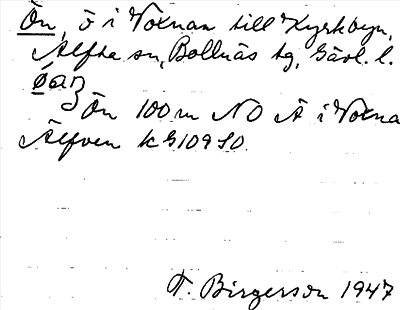 Ön, ö i Voxnan till Kyrkbyn,
Alfta sn, Bollnäs tg, Gävl. l.
Ön 100 m NO Ä i Voxna
Älfven k G109 SO.
T. Birgerson 1947